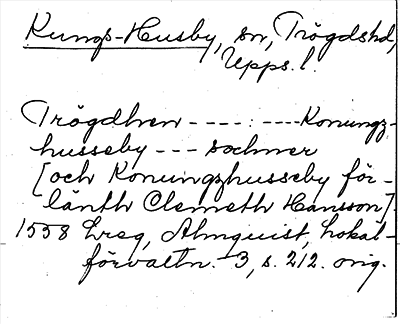 Kungs-Husby, sn, Trögdshd,
Upps. l.
Trögdhren - - - - : - - - - Konungz-
husseby - - - sochner
[och Konungzhusseby för-
länth Clemeth Hansson].
1558 Lreg, Almquist, Lokal-
förvaltn. 3, s. 212. orig.